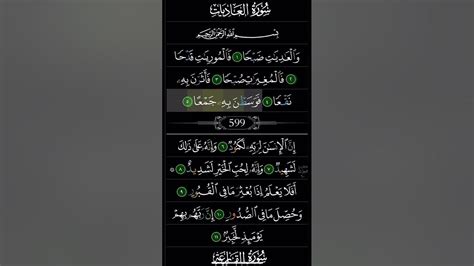 سُورَةُ العَادِيَاتِ
بِسْمِ ٱللَّهِ ٱلرَّحْمَٰنِ ٱلرَّحِيمِ
وَٱلْعَٰدِيَٰتِ ضَبْحًا ١ فَٱلْمُورِيَٰتِ قَدْحًا
٢ فَٱلْمُغِيرَٰتِ صُبْحًا ٣ فَأَثَرْنَ بِهِۦ
نَقْعًا ٤ فَوَسَطْنَ بِهِۦ جَمْعًا ٥
599
إِنَّ ٱلْإِنسَٰنَ لِرَبِّهِۦ لَكَنُودٌ ٦ وَإِنَّهُۥ عَلَىٰ ذَٰلِكَ
لَشَهِيدٌ ٧ وَإِنَّهُۥ لِحُبِّ ٱلْخَيْرِ لَشَدِيدٌ ٨
أَفَلَا يَعْلَمُ إِذَا بُعْثِرَ مَا فِي ٱلْقُبُورِ ٩
وَحُصِّلَ مَا فِي ٱلصُّدُورِ ١٠ إِنَّ رَبَّهُم بِهِمْ
يَوْمَئِذٍ لَّخَبِيرٌۢ ١١
سُورَةُ القَارِعَةِ